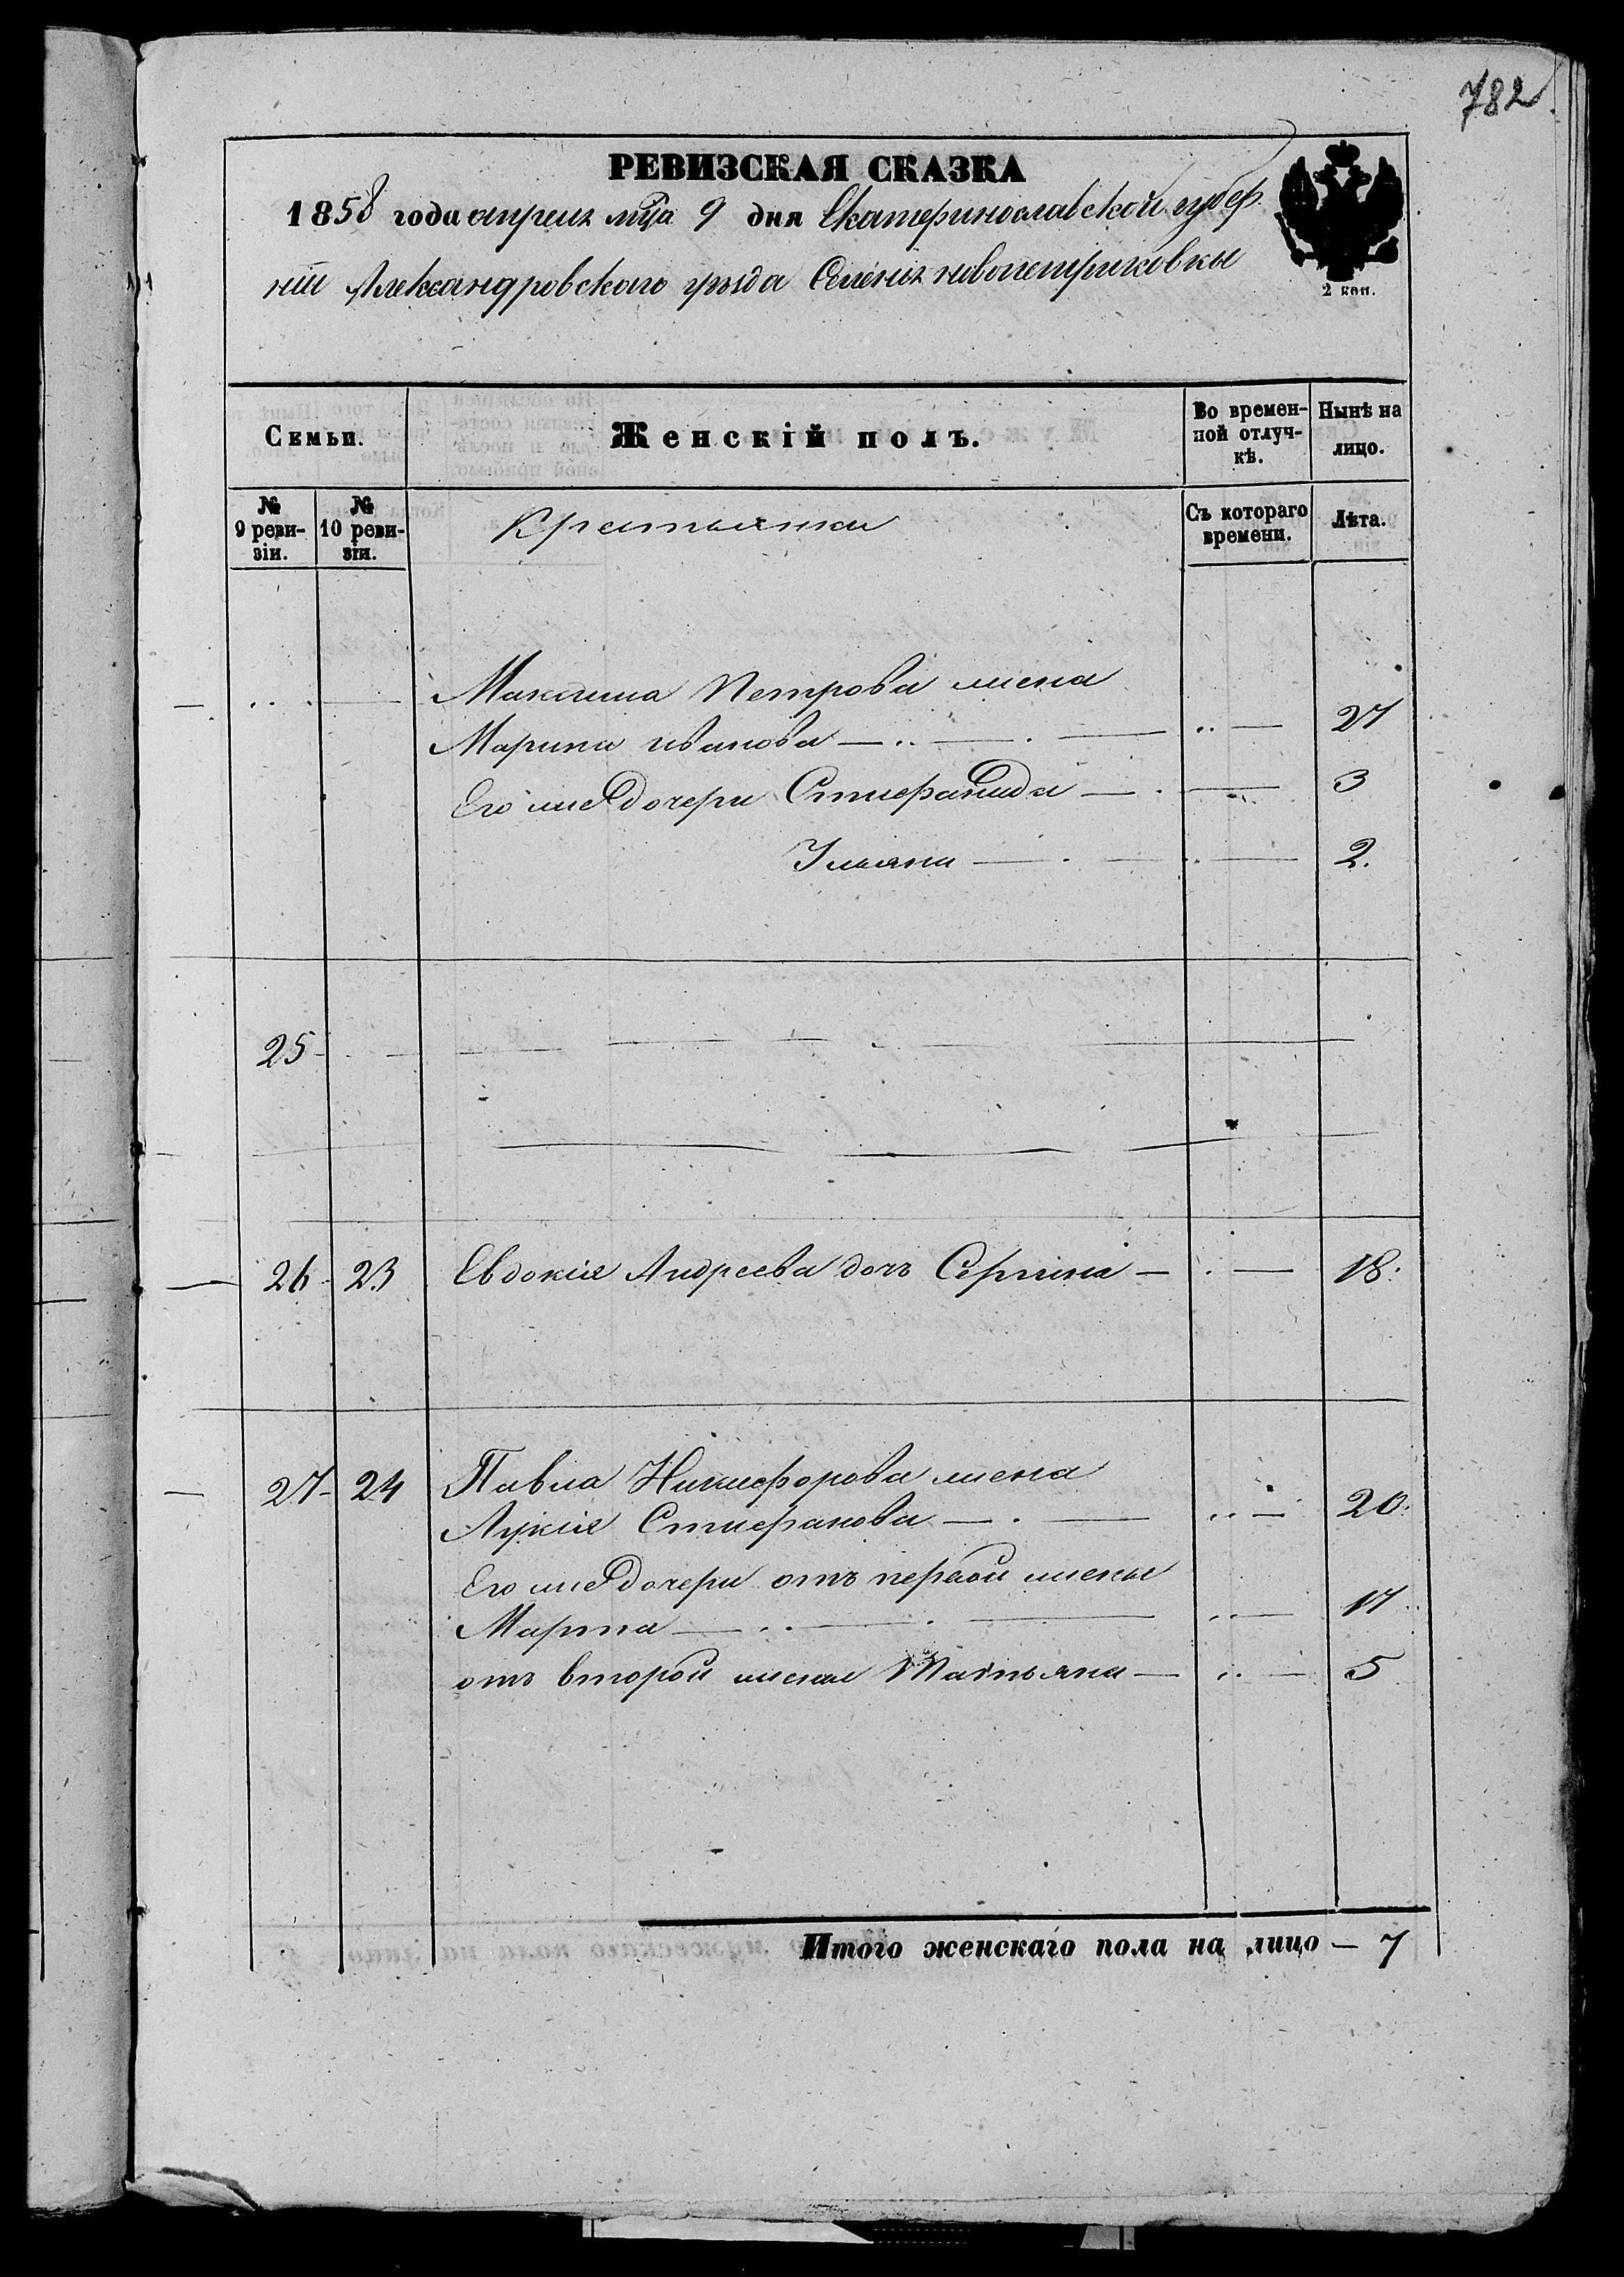 782
РЕВИЗСКАЯ СКАЗКА
1858 года апреля мца 9 дня Екатеринославской губер
ніи Александровскаго уѣзда Селенія новопетриковки
2 коп.
Семьи.
Женскій полъ.
Во времен-
ной отлуч-
кѣ.
Нынѣ на
лицо.
№
9 реви-
зіи.
№
10 реви-
зіи.
Крестьянки
Съ котораго
времени.
Лѣта.
Максима Петрова жена
Марина иванова — 27
Его же дочери Стефанида — 3
Ульяна — 2.
25
26 23 Евдокія Андреева дочь — 18.
27 24 Павла Никифорова жена
Лукія Стефанова — 20.
Его же дочери отъ первой жены
Марта — 17
отъ второй жены Татьяна — 5
Итого женскаго пола на лицо — 7